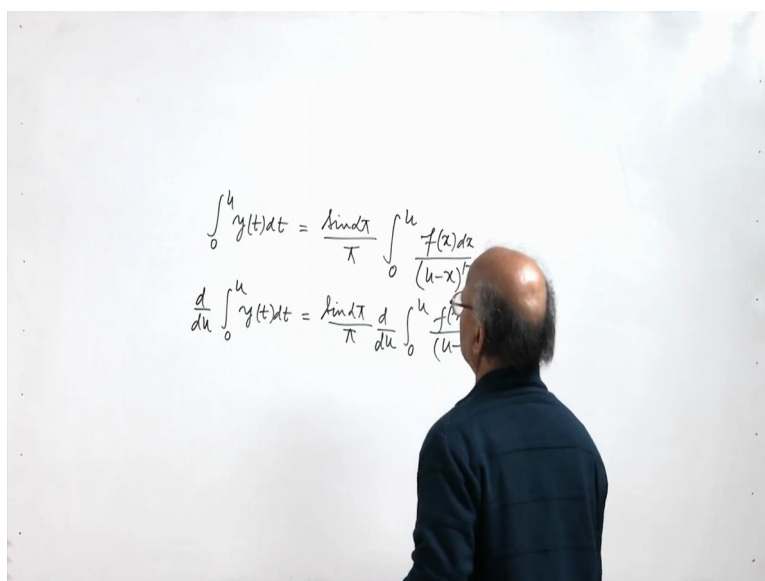 ∫₀ᵘ y(t)dt = sin απ / π ∫₀ᵘ f(x)dx / (u-x)¹⁻
d/du ∫₀ᵘ y(t)dt = sin απ / π d/du ∫₀ᵘ f( / (u-